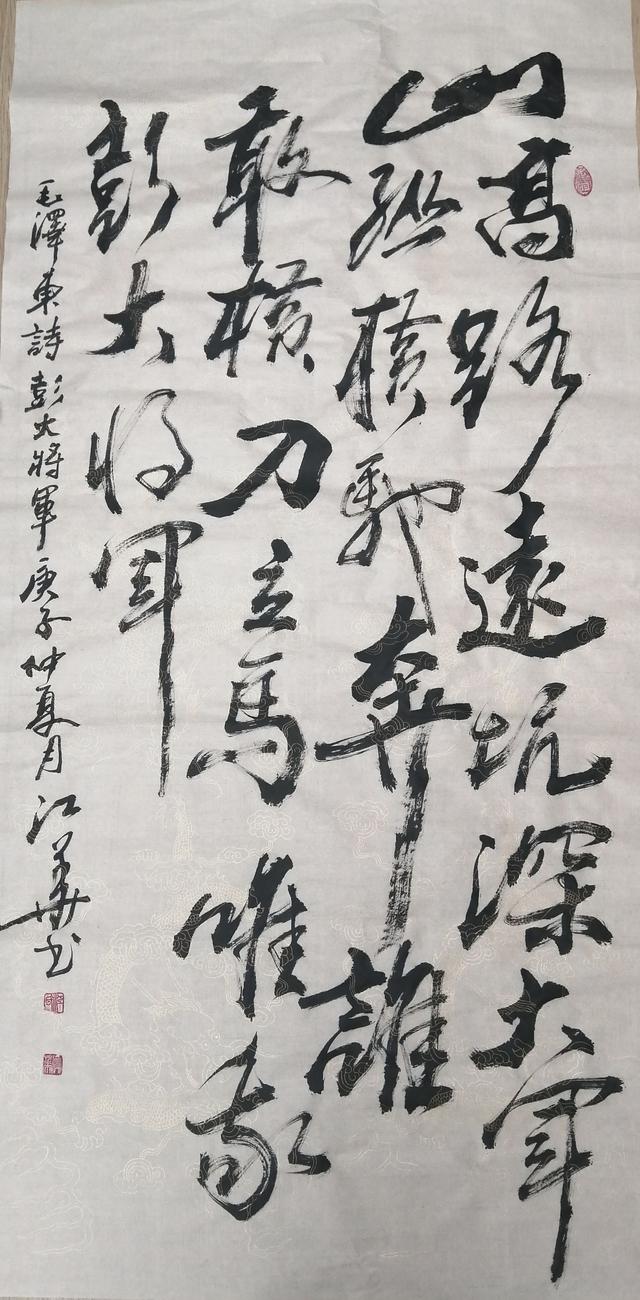 山高路遠坑深大軍
縱横馳奔誰
敢横刀立馬唯我
彭大将軍
毛澤東詩彭大將軍庚子仲夏月江華书